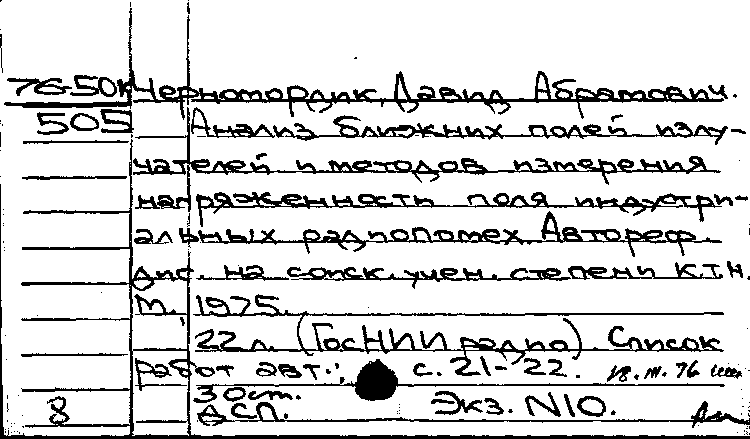 76-50к Черномордик, Давид Абрамович.
505 Анализ ближних полей излу-
чателей и методов измерения
напряженности поля индустри-
альных радиопомех. Автореф.
дис. на соиск. учен. степени к.т.н.
М., 1975.
22 л. (ГосНИИ радио). Список
работ авт.: с. 21-22.
30ст.
8 ДСП. Экз. N10.